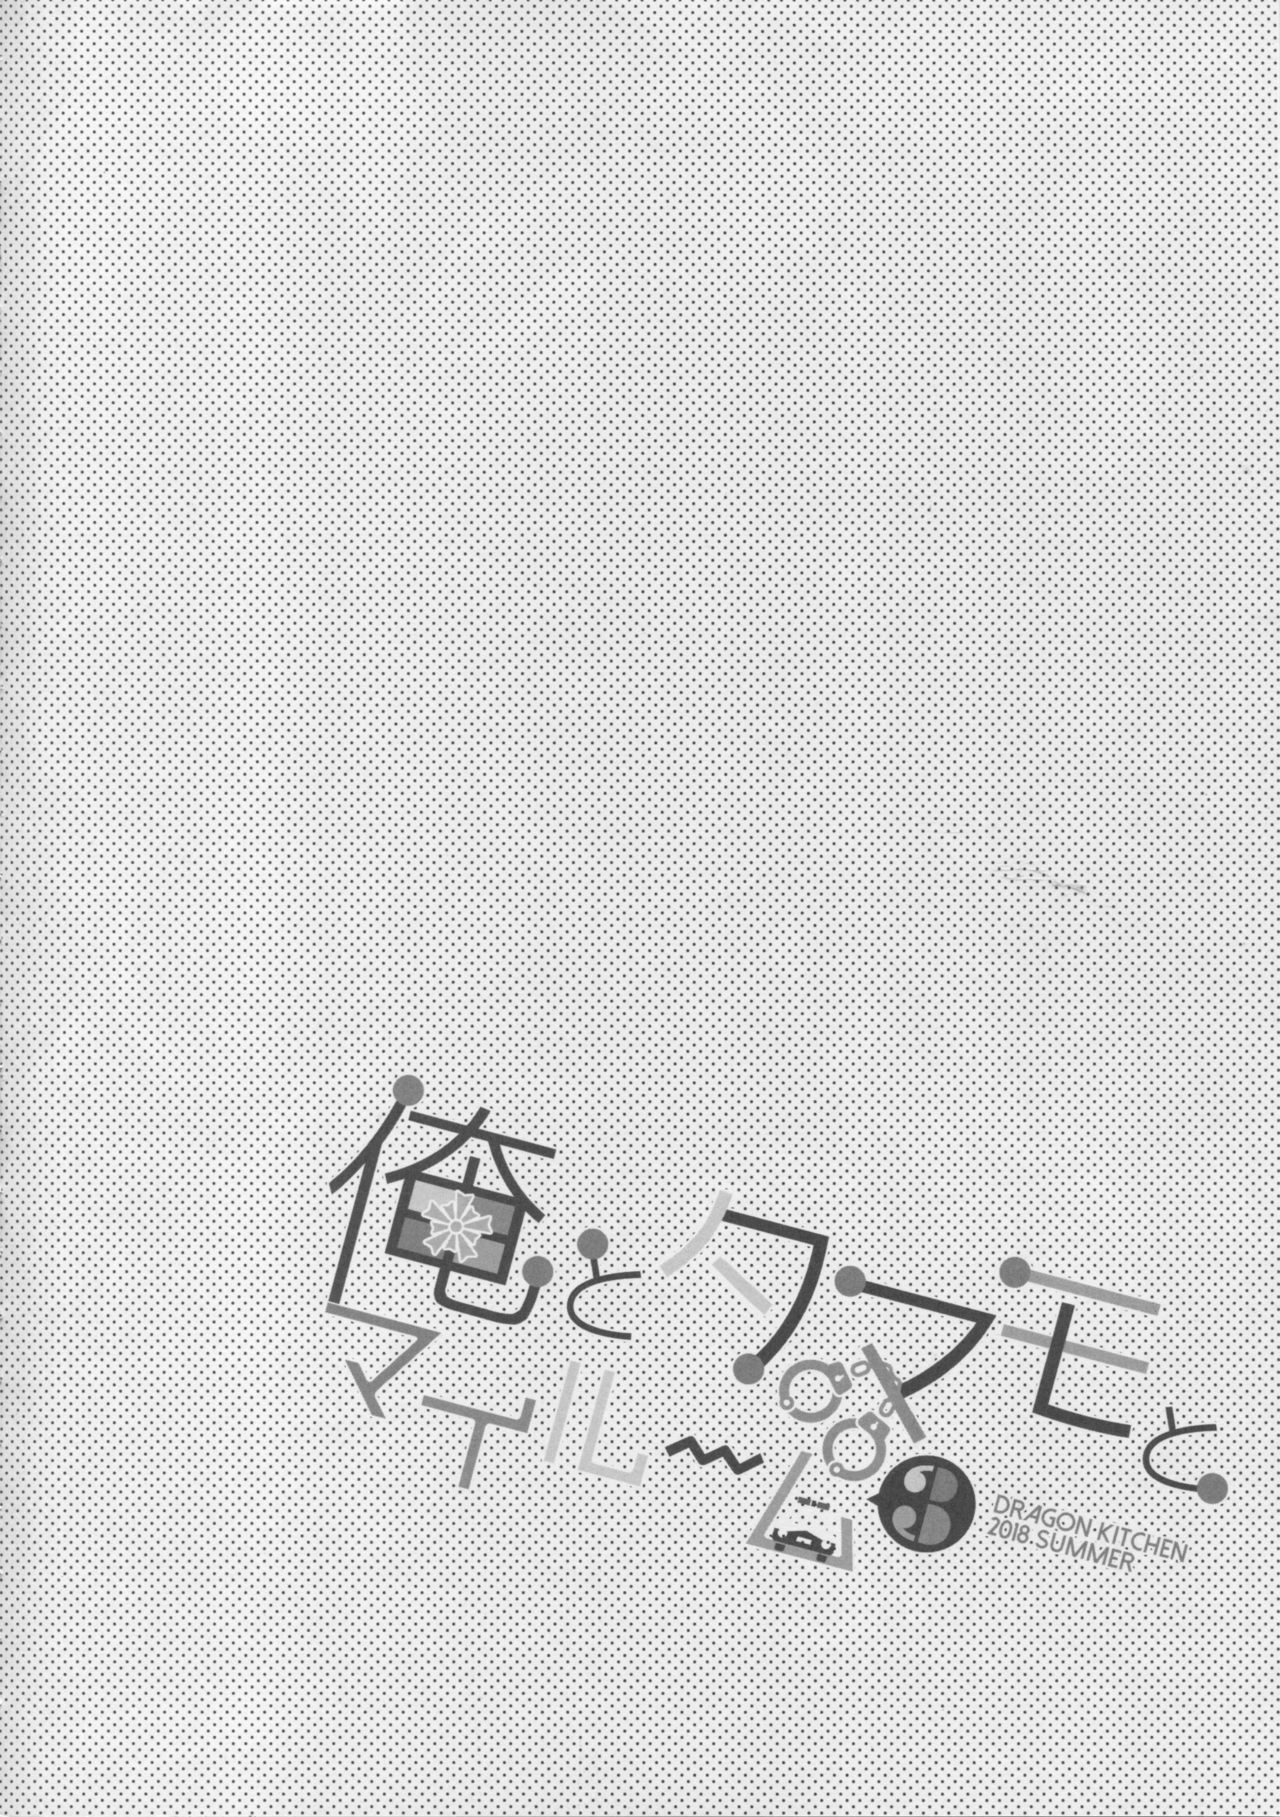 俺とタマモと
マイルーム3
DRAGON·KITCHEN.
2018.SUMMER